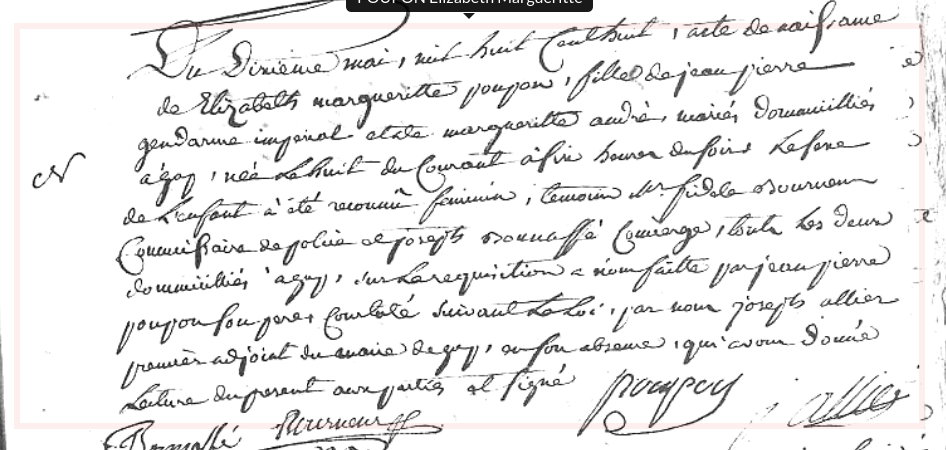 POUPON Elizabeth Margueritte
Du Dixième mai, mil huit Cent huit, acte de naissance
de Elizabeth margueritte poupon, fille de jean pierre
gendarme imperial et de margueritte andré, mariés Domiciliés
à gap, née Le huit du Courant à six heures du soir. Le sexe
de L'enfant à été reconnû féminin, temoin Mr fidele
Commissaire de police et joseph bonnaffé Concierge, touts Les deux
domiciliés à gap, sur La requisition a nous faitte par jean pierre
poupon son pere, Constaté suivant La Loi, par nous joseph allier
premier adjoint du maire de gap, en son absence, qui avons Donné
Lecture du present aux parties et signé
poupon
allier
Bonnaffé